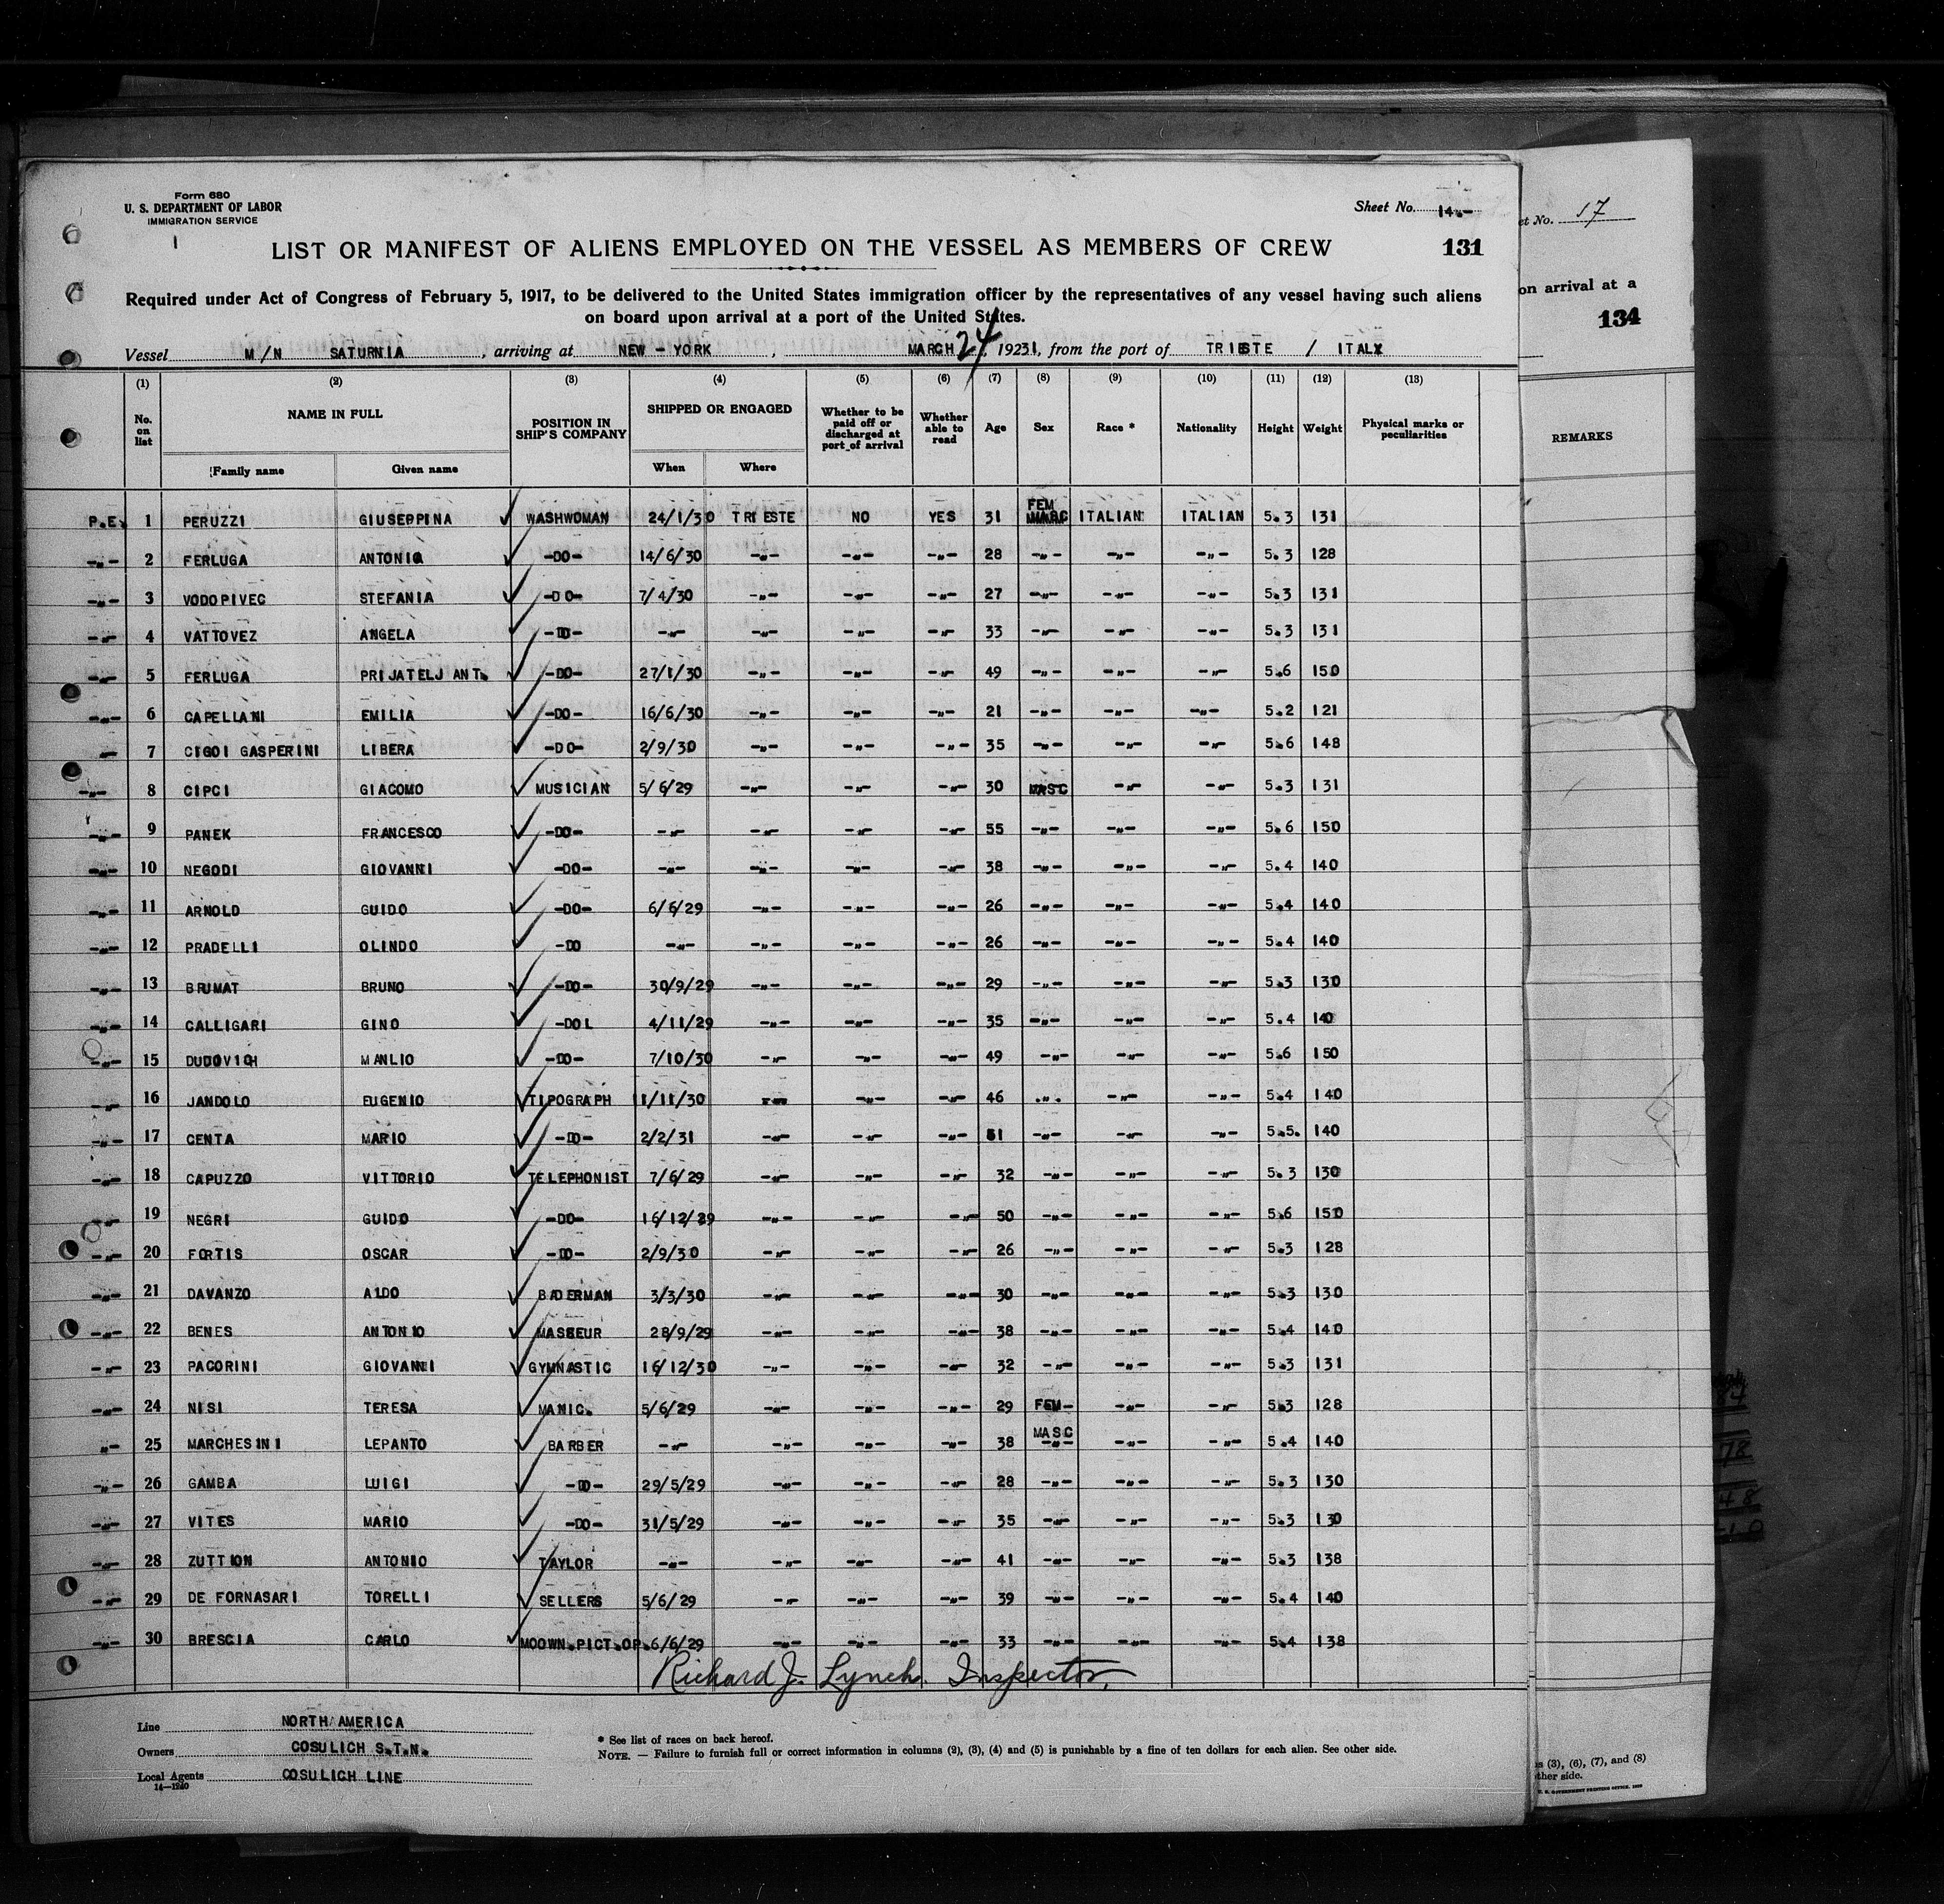 Form 680
U. S. DEPARTMENT OF LABOR
IMMIGRATION SERVICE
Sheet No. 14.-
LIST OR MANIFEST OF ALIENS EMPLOYED ON THE VESSEL AS MEMBERS OF CREW
131
Required under Act of Congress of February 5, 1917, to be delivered to the United States immigration officer by the representatives of any vessel having such aliens
on board upon arrival at a port of the United States.
Vessel M/N SATURNIA, arriving at NEW-YORK, MARCH 24, 19231, from the port of TRIESTE / ITALY
(1) (2) (3) (4) (5) (6) (7) (8) (9) (10) (11) (12) (13)
No. on list NAME IN FULL POSITION IN SHIP'S COMPANY SHIPPED OR ENGAGED Whether to be paid off or discharged at port of arrival Whether able to read Age Sex Race * Nationality Height Weight Physical marks or peculiarities
Family name Given name When Where
P.E. 1 PERUZZI GIUSEPPINA WASHWOMAN 24/1/30 TRIESTE NO YES 31 FEM ITALIAN ITALIAN 5.3 131
-"- 2 FERLUGA ANTONIA -DO- 14/6/30 -"- -"- -"- 28 -"- -"- -"- 5.3 128
-"- 3 VODOPIVEC STEFANIA -DO- 7/4/30 -"- -"- -"- 27 -"- -"- -"- 5.3 131
-"- 4 VATTOVEZ ANGELA -DO- -"- -"- -"- -"- 33 -"- -"- -"- 5.3 131
-"- 5 FERLUGA PRIJATELJ ANT. -DO- 27/1/30 -"- -"- -"- 49 -"- -"- -"- 5.6 150
-"- 6 CAPELLANI EMILIA -DO- 16/6/30 -"- -"- -"- 21 -"- -"- -"- 5.2 121
-"- 7 CIGOI GASPERINI LIBERA -DO- 2/9/30 -"- -"- -"- 35 -"- -"- -"- 5.6 148
-"- 8 CIPCI GIACOMO MUSICIAN 5/6/29 -"- -"- -"- 30 MASC -"- -"- 5.3 131
-"- 9 PANEK FRANCESCO -DO- -"- -"- -"- -"- 55 -"- -"- -"- 5.6 150
-"- 10 NEGODI GIOVANNI -DO- -"- -"- -"- -"- 38 -"- -"- -"- 5.4 140
-"- 11 ARNOLD GUIDO -DO- 6/6/29 -"- -"- -"- 26 -"- -"- -"- 5.4 140
-"- 12 PRADELLI OLINDO -DO -"- -"- -"- -"- 26 -"- -"- -"- 5.4 140
-"- 13 BRUMAT BRUNO -DO- 30/9/29 -"- -"- -"- 29 -"- -"- -"- 5.3 130
-"- 14 CALLIGARI GINO -DOL 4/11/29 -"- -"- -"- 35 -"- -"- -"- 5.4 140
-"- 15 DUDOVICH MANLIO -DO- 7/10/30 -"- -"- -"- 49 -"- -"- -"- 5.6 150
-"- 16 JANDOLO EUGENIO TIPOGRAPH 11/11/30 -"- -"- -"- 46 -"- -"- -"- 5.4 140
-"- 17 CENTA MARIO -DO- 2/2/31 -"- -"- -"- 51 -"- -"- -"- 5.5. 140
-"- 18 CAPUZZO VITTORIO TELEPHONIST 7/6/29 -"- -"- -"- 32 -"- -"- -"- 5.3 130
-"- 19 NEGRI GUIDO -DO- 16/12/29 -"- -"- -"- 50 -"- -"- -"- 5.6 150
-"- 20 FORTIS OSCAR -DO- 2/9/30 -"- -"- -"- 26 -"- -"- -"- 5.3 128
-"- 21 DAVANZO ALDO BADERMAN 3/3/30 -"- -"- -"- 30 -"- -"- -"- 5.3 130
-"- 22 BENES ANTONIO MASSEUR 28/9/29 -"- -"- -"- 38 -"- -"- -"- 5.4 140
-"- 23 PACORINI GIOVANNI GYMNASTIC 16/12/30 -"- -"- -"- 32 -"- -"- -"- 5.3 131
-"- 24 NISI TERESA MANIC. 5/6/29 -"- -"- -"- 29 FEM- -"- -"- 5.3 128
"- 25 MARCHESINI LEPANTO BARBER -"- -"- -"- -"- 38 MASC -"- -"- -"- 5.4 140
-"- 26 GAMBA LUIGI -DO- 29/5/29 -"- -"- -"- 28 -"- -"- -"- 5.3 130
-"- 27 VITES MARIO -DO- 31/5/29 -"- -"- -"- 35 -"- -"- -"- 5.3 130
-"- 28 ZUTTION ANTONIO TAYLOR -"- -"- -"- -"- 41 -"- -"- -"- 5.3 138
-"- 29 DE FORNASARI TORELLI SELLERS 5/6/29 -"- -"- -"- 39 -"- -"- -"- 5.4 140
-"- 30 BRESCIA CARLO MOOWN.PICT.OP. 6/6/29 -"- -"- -"- 33 -"- -"- -"- 5.4 138
Richard J. Lynch. Inspector.
Line NORTH AMERICA
Owners COSULICH S.T.N.
Local Agents COSULICH LINE
14—1240
* See list of races on back hereof.
NOTE. — Failure to furnish full or correct information in columns (2), (3), (4) and (5) is punishable by a fine of ten dollars for each alien. See other side.
et No. 17
on arrival at a
134
REMARKS
(3), (6), (7), and (8)
ther side.
U. S. GOVERNMENT PRINTING OFFICE